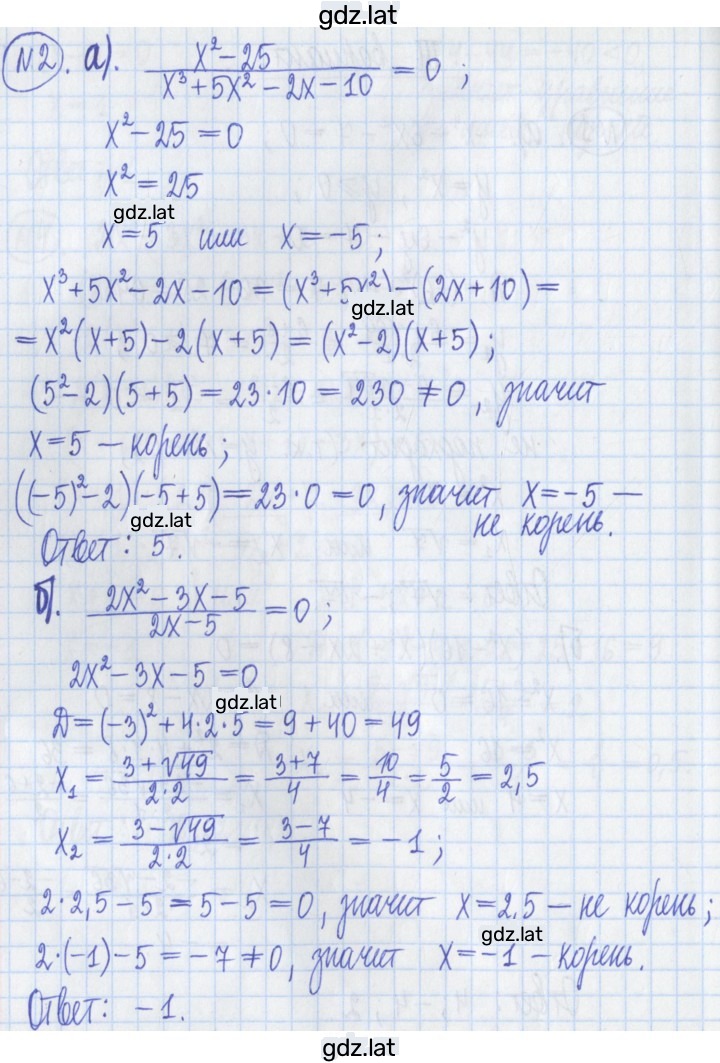 gdz.lat
№2. а). (x² − 25)/(x³ + 5x² − 2x − 10) = 0 ;
x² − 25 = 0
x² = 25
gdz.lat
x = 5 или x = −5 ;
x³ + 5x² − 2x − 10 = (x³ + 5x²) − (2x + 10) =
gdz.lat
= x²(x + 5) − 2(x + 5) = (x² − 2)(x + 5) ;
(5² − 2)(5 + 5) = 23 · 10 = 230 ≠ 0, значит
x = 5 — корень ;
((−5)² − 2)(−5 + 5) = 23 · 0 = 0, значит x = −5 —
gdz.lat
не корень.
Ответ: 5.
б). (2x² − 3x − 5)/(2x − 5) = 0 ;
2x² − 3x − 5 = 0
gdz.lat
Д = (−3)² + 4 · 2 · 5 = 9 + 40 = 49
x₁ = (3 + √49)/(2 · 2) = (3 + 7)/4 = 10/4 = 5/2 = 2,5
x₂ = (3 − √49)/(2 · 2) = (3 − 7)/4 = −1 ;
2 · 2,5 − 5 = 5 − 5 = 0, значит x = 2,5 — не корень ;
gdz.lat
2 · (−1) − 5 = −7 ≠ 0, значит x = −1 — корень.
Ответ: −1.
gdz.lat